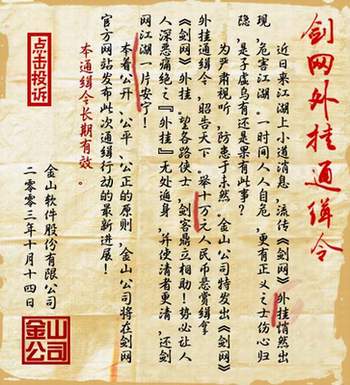 剑网外挂通缉令
近日来江湖上小道消息,流传《剑网》外挂悄然出
现,危害江湖。一时间人人自危,更有正义之士伤心归
隐,是子虚乌有还是果有此事?
为严肃视听,防患于未然,金山公司特发出《剑网》
外挂通缉令,昭告天下。举十万元人民币悬赏缉拿
《剑网》外挂,望各路侠士,剑客鼎立相助!势必让人
人深恶痛绝之『外挂』无处遁身,并使清者更清,还剑
网江湖一片安宁!
本着公开、公平、公正的原则,金山公司将在剑网
官方网站发布此次通缉行动的最新进展!
本通缉令长期有效。
金山软件股份有限公司
二〇〇三年十月十四日
点击投诉
金山
公司